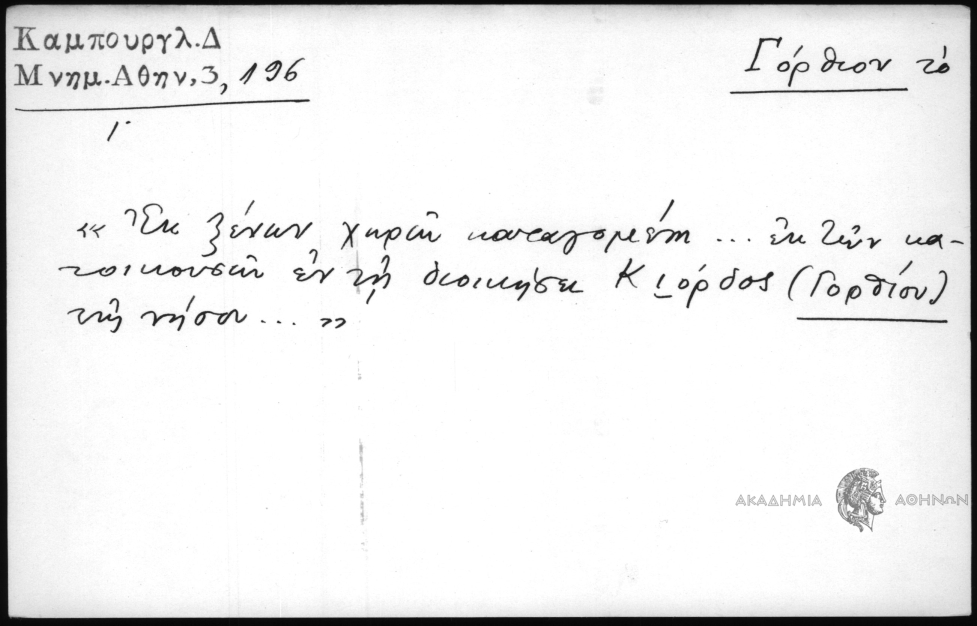 Καμπουργλ.Δ
Μνημ.Αθην,3, 196
Γόρθιον τὸ
« Ἐκ ξένων χωρῶν καταγομένη ... ἐκ τῶν κα-
τοικουσῶν ἐν τῇ διοικήσει Κιόρδος (Γορθίου)
τῆς νήσου ... »
ΑΚΑΔΗΜΙΑ ΑΘΗΝΩΝ